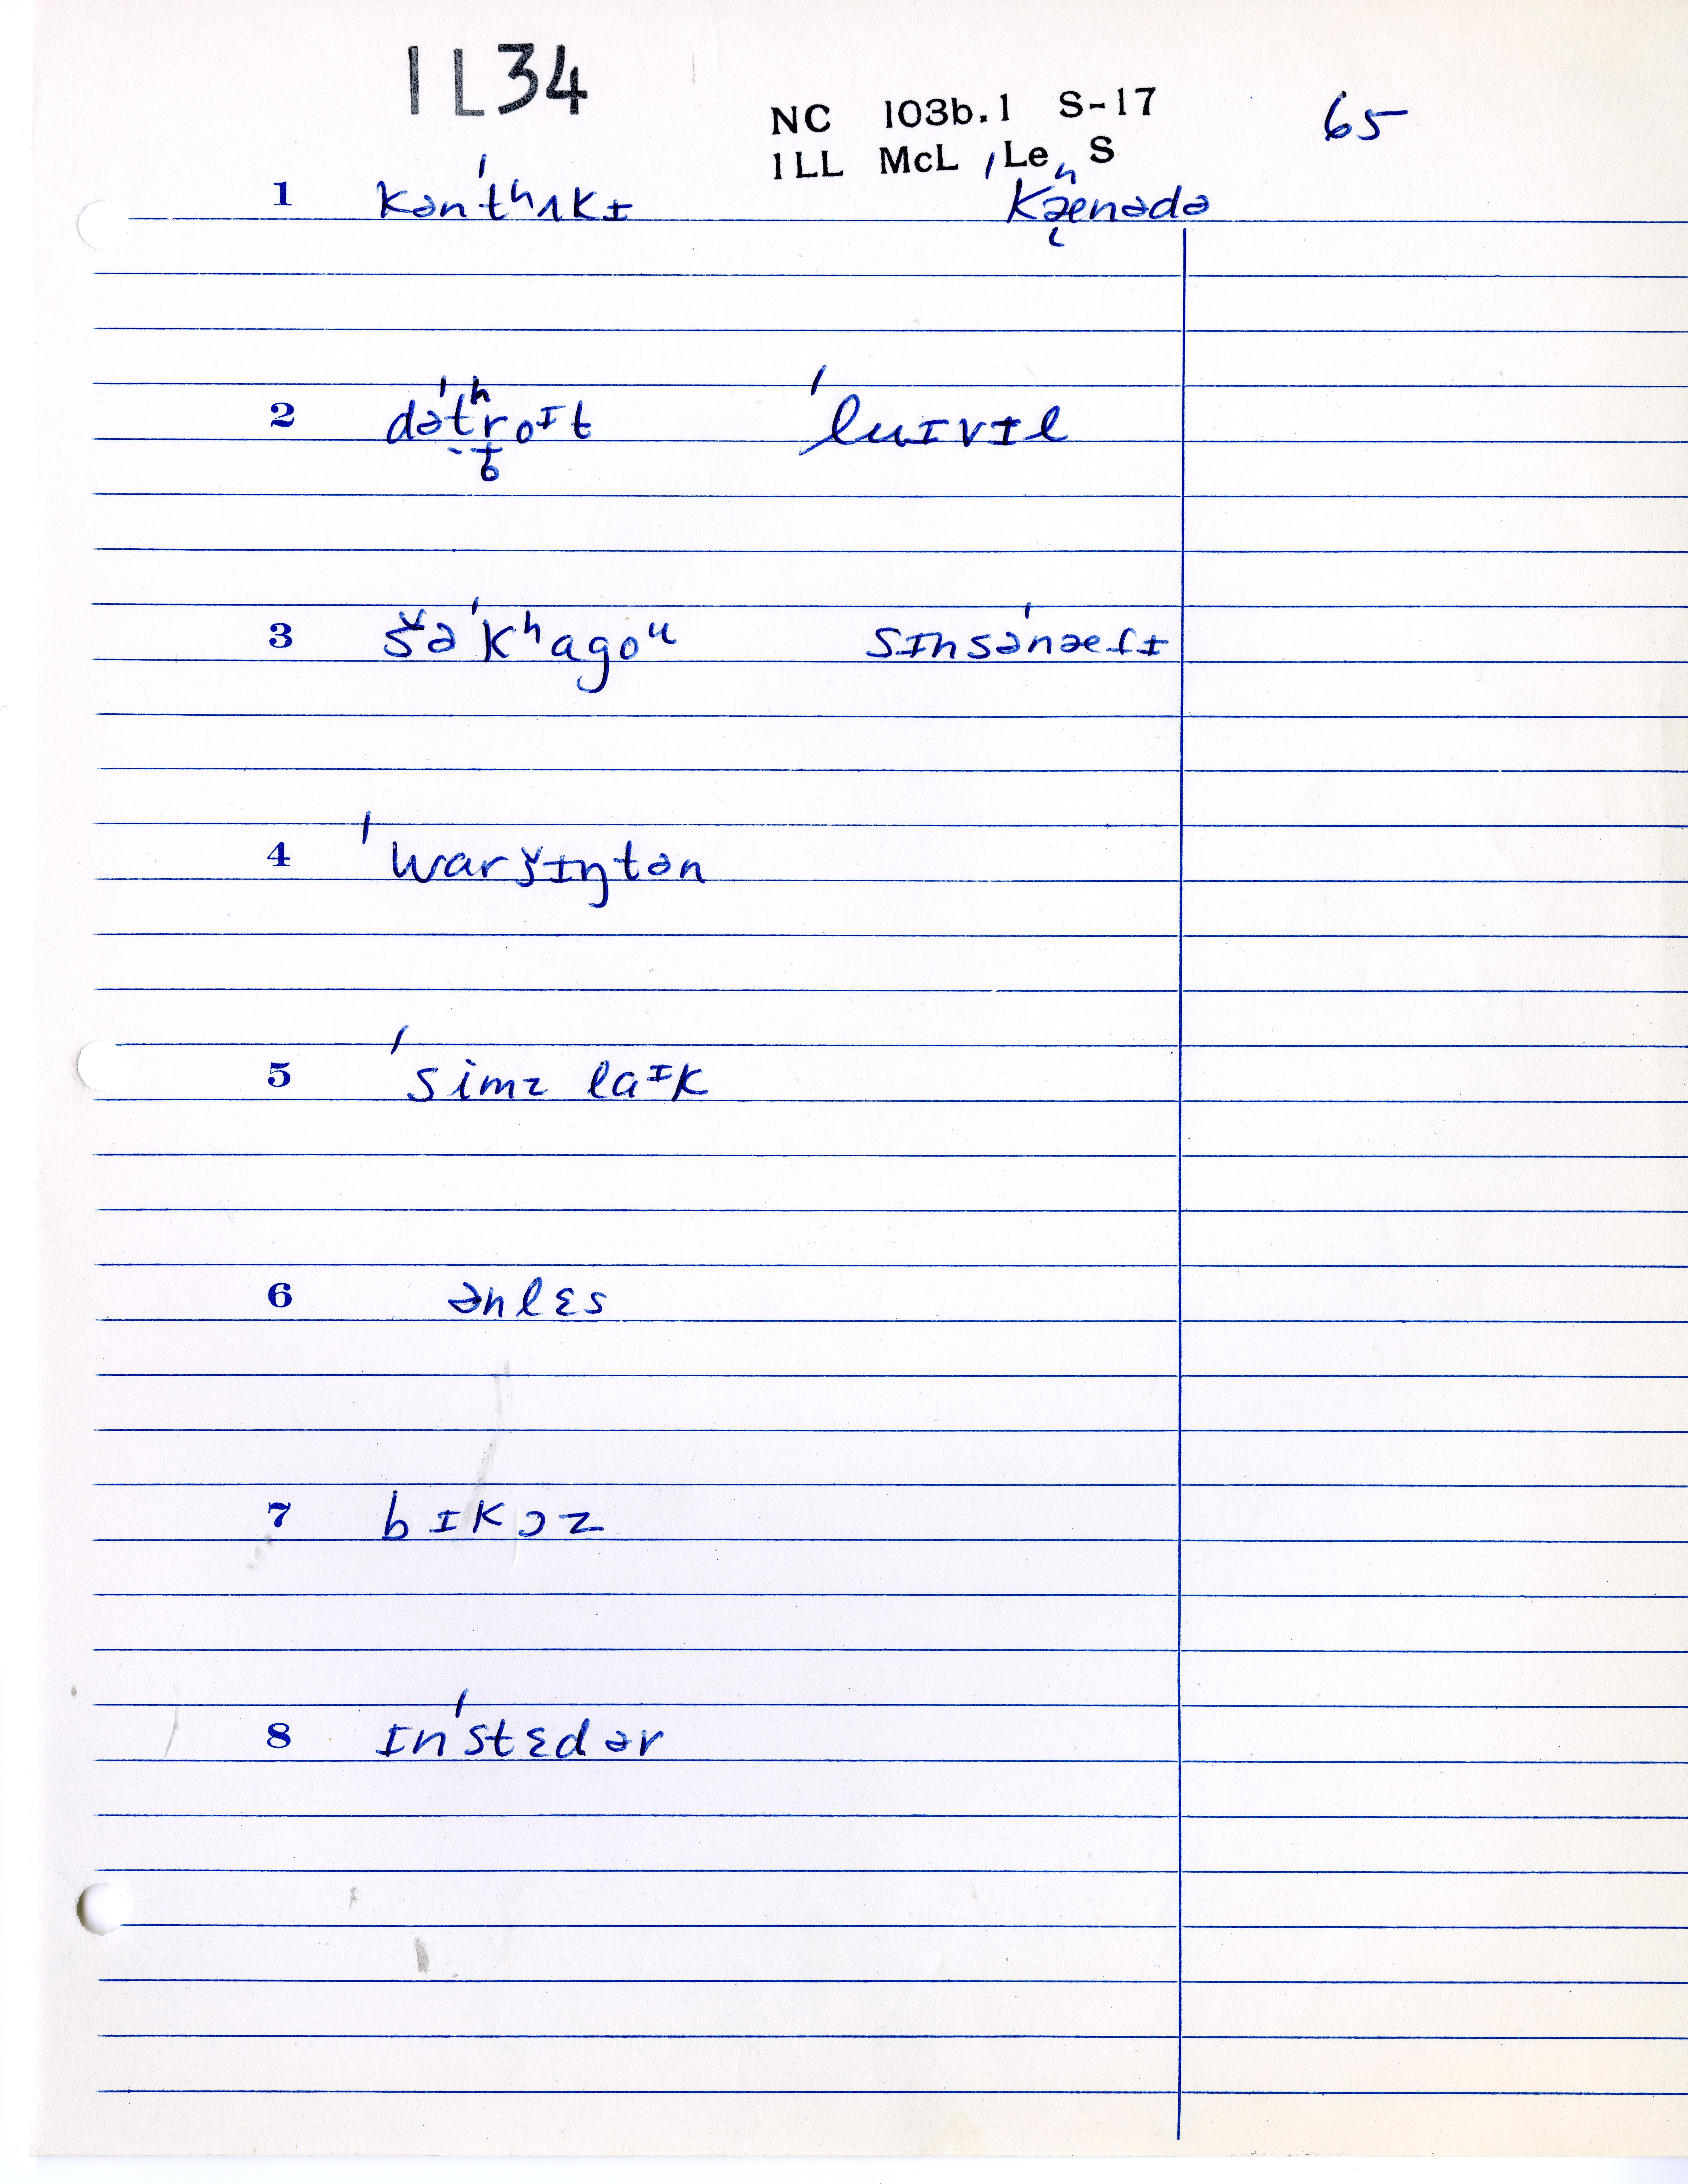 IL34
NC 103b.1 S-17 65
ILL McL Le S
1 kən'tʰʌkɪ 'kʰæ̨nədə
2 də'tʰro̬ɪt 'luɪvɪl
3 šə'kʰagoᵘ sɪnsə'næt̬ɪ
4 'waršɪŋtən
5 'simz laᴵk
6 ənlɛs
7 bɪkɔz
8 ɪn'stɛdər